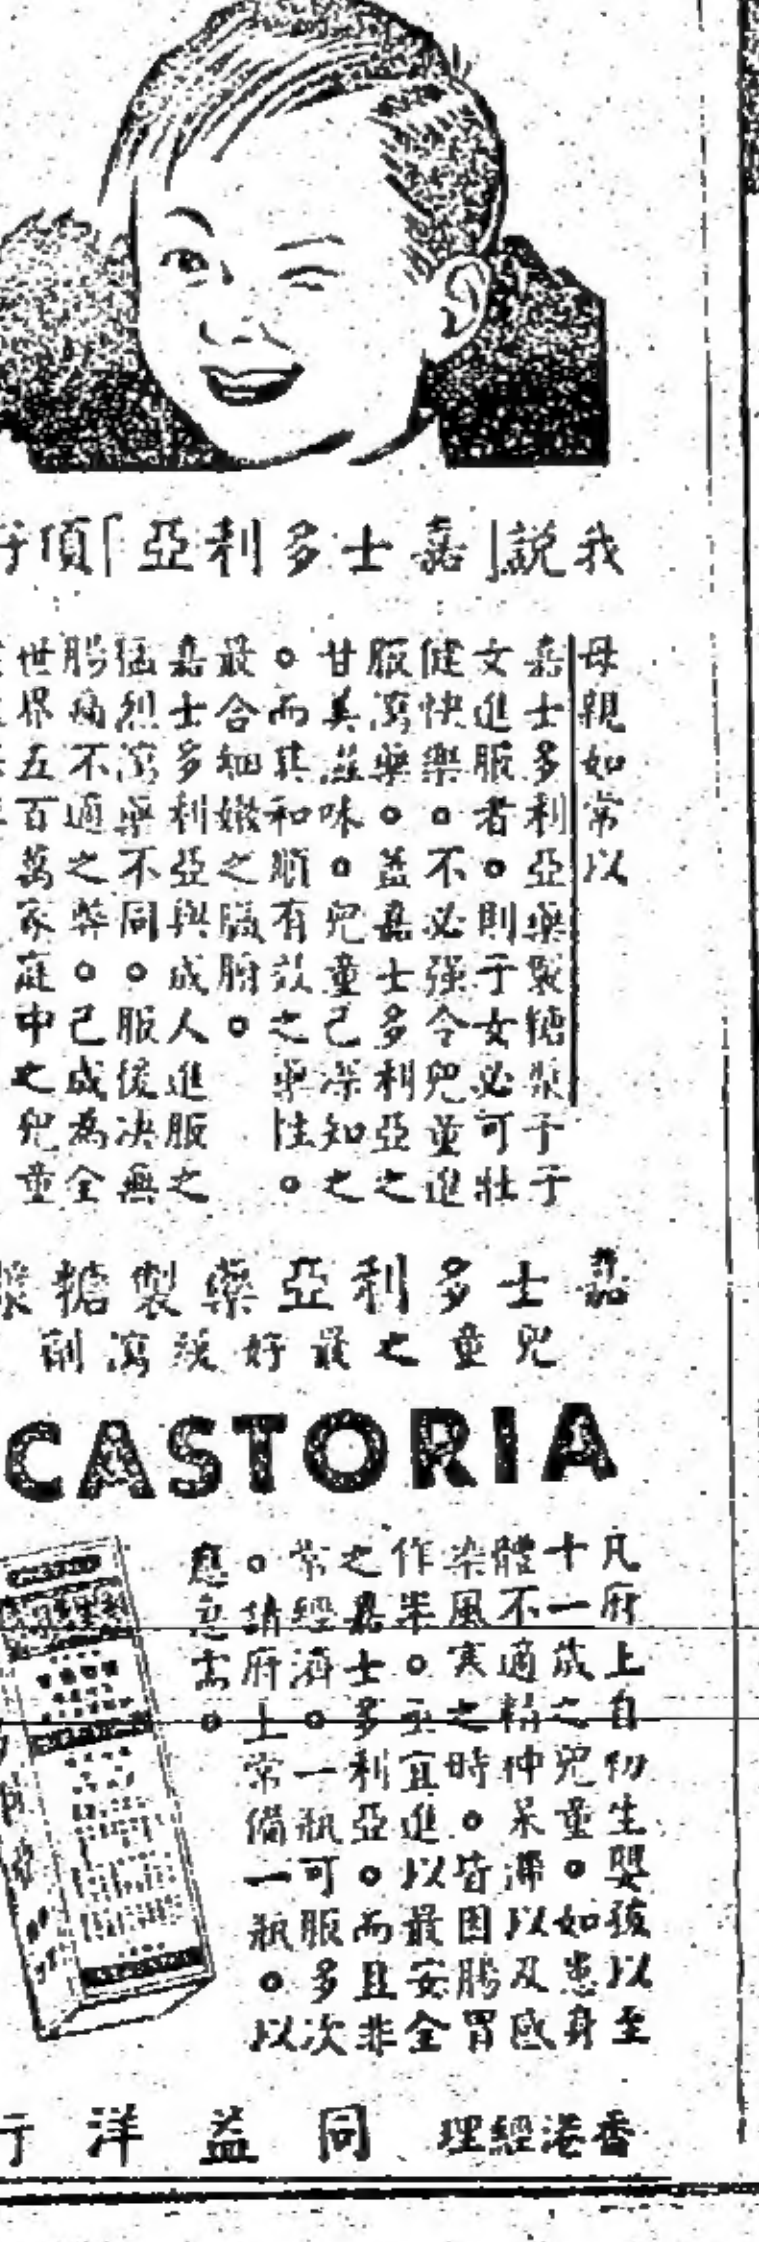 我說「嘉士多利亞」頂好
母親如常以
嘉士多利亞藥製糖漿于子
女進服者。則子女必可壯
健快樂。不必强令兒童進
服瀉藥。益嘉士多利亞之
甘美滋味。兒童已深知之
。而其和順有效之藥性。
最合細嫩之臟腑。
嘉士多利亞與成人進服之
猛烈瀉藥不同。服後决無
腸痛不適之弊。已成為全
世界五百萬家庭中之兒童
嘉士多利亞藥製糖漿
兒童之最好緩瀉劑
CASTORIA
凡府上自初生嬰孩以至
十一歲之兒童。如患身
體不適精神呆滯以及感
染風寒之時。皆因腸胃
作祟。亟宜進以最安全
之嘉士多利亞。而且非
常經濟。一瓶可服多次
。請府上常備一瓶。以
應急需。
香港經理 同益洋行